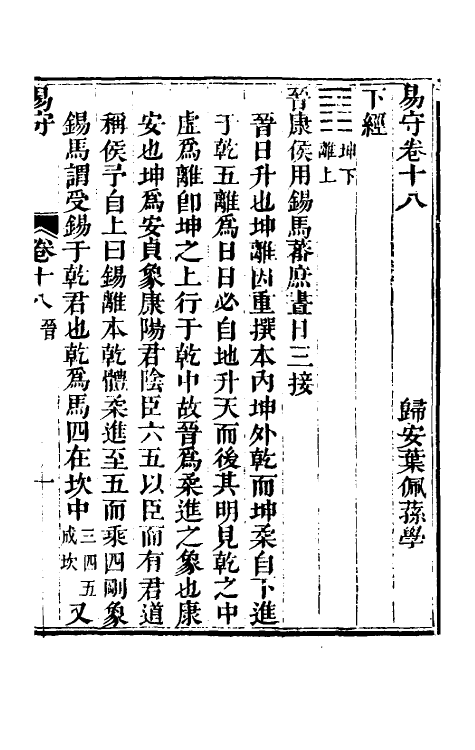 易守卷十八　歸安葉佩蓀學
下經
坤下
離上
晉康侯用錫馬蕃庶晝日三接
晉日升也坤離因重撰本內坤外乾而坤柔自下進
于乾五離爲日日必自地升天而後其明見乾之中
虛爲離卽坤之上行于乾中故晉爲柔進之象也康
安也坤爲安貞象康陽君陰臣六五以臣而有君道
稱侯予自上曰錫離本乾體柔進至五而乘四剛象
錫馬謂受錫于乾君也乾爲馬四在坎中三四五成坎又
易守　卷十八　晉　十一